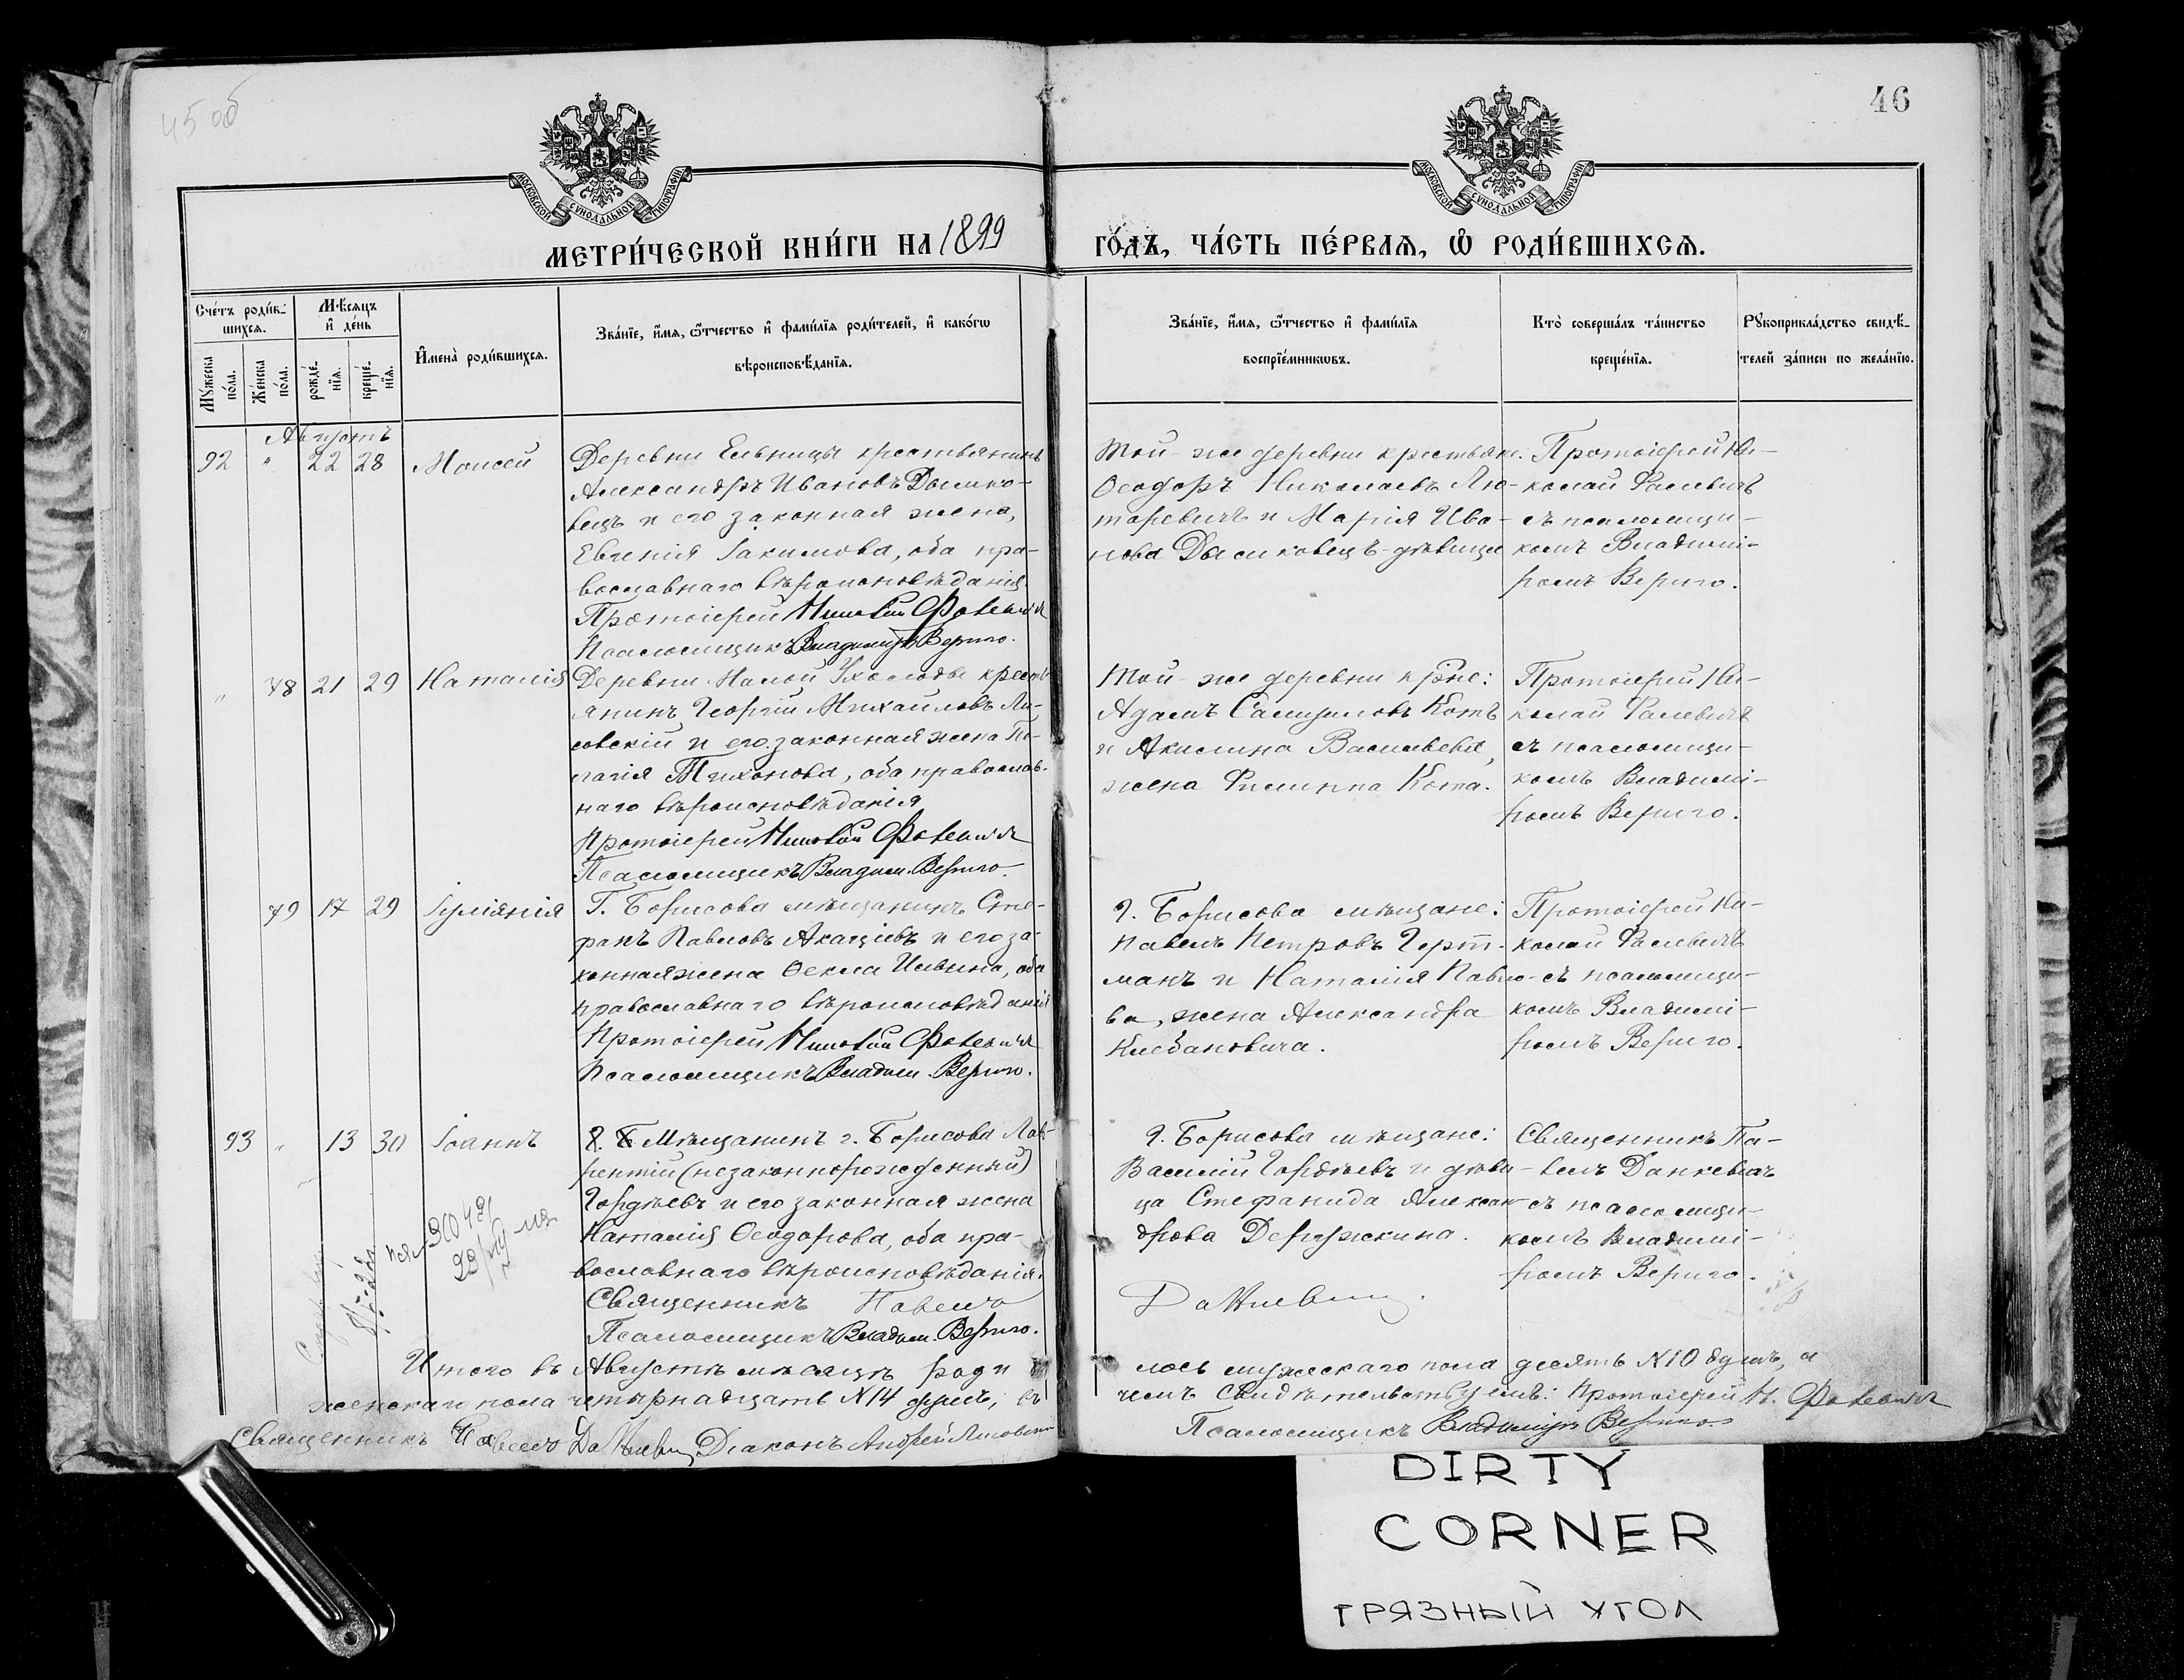 45 об
46
МОСКОВСКОЙ СУНОДАЛЬНОЙ ТИПОГРАФIИ
МОСКОВСКОЙ СУНОДАЛЬНОЙ ТИПОГРАФIИ
МЕТРИ́ЧЕСКОЙ КНИ́ГИ НА 1899
ГО́ДЪ, ЧА́СТЬ ПЕ́РВАЯ, Ѽ РОДИ́ВШИХСЯ.
Сче́тъ роди́вшихся.
Мꙋ́жеска по́ла.
Же́нска по́ла.
Мѣ́сяцъ и҆ де́нь
рожде́нїя.
креще́нїя.
И҆мена̀ роди́вшихся.
Зва́нїе, и҆́мя, ѻ҆́тчество и҆ фами́лїя роди́телей, и҆ како́гѡ
вѣроисповѣ́данїя.
Зва́нїе, и҆́мя, ѻ҆́тчество и҆ фами́лїя
воспрїе́мникѡвъ.
Кто̀ соверша́лъ та́инство
креще́нїя.
Рꙋкоприкла́дство свидѣ́-
телей за́писи по жела́нїю.
Августъ
92 " 22 28 Моисей
Деревни Ельницы крестьянинъ
Александръ Ивановъ Дымко-
вецъ и его законная жена,
Евгенія Іакимова, оба пра-
вославнаго вѣроисповѣданія.
Протоіерей Николай Фалевичъ
Псаломщикъ Владиміръ Вериго.
Той-же деревни крестьян:
Ѳеодоръ Николаевъ Лю-
таревичъ и Марія Ива-
нова Дымковецъ-дѣвица
Протоіерей Ни-
колай Фалевичъ
съ псаломщи-
комъ Владимі-
ромъ Вериго.
" 78 21 29 Наталія
Деревни Малой Ухолоды кресть-
янинъ Георгій Михайловъ Ли-
совскій и его законная жена Пе-
лагія Тихонова, оба православ-
наго вѣроисповѣданія
Протоіерей Николай Фалевичъ
Псаломщикъ Владим. Вериго.
Той-же деревни крне:
Адамъ Самуиловъ Котъ
и Акилина Васильева,
жена Филиппа Кота.
Протоіерей Ни-
колай Фалевичъ
съ псаломщи-
комъ Владимі-
ромъ Вериго.
79 17 29 Іуліанія
Г. Борисова мѣщанинъ Сте-
фанъ Павловъ Акаціевъ и его за-
конная жена Ѳекла Ильина, оба
православнаго вѣроисповѣданія
Протоіерей Николай Фалевичъ
Псаломщикъ Владим. Вериго.
г. Борисова мѣщане:
Павелъ Петровъ Герт-
манъ и Наталія Павло-
ва, жена Александра
Клебановича.
Протоіерей Ни-
колай Фалевичъ
съ псаломщи-
комъ Владимі-
ромъ Вериго.
93 " 13 30 Іоаннъ
Мѣщанинъ г. Борисова Лав-
рентій (незаконнорожденный)
Гордѣевъ и его законная жена
Наталія Ѳеодорова, оба пра-
вославнаго вѣроисповѣданія.
Священникъ Павелъ
Псаломщикъ Владим. Вериго.
г. Борисова мѣщане:
Василій Гордѣевъ и дѣви-
ца Стефанида Алексан-
дрова Держкина.
Данкевичъ.
Священникъ Па-
велъ Данкевичъ
съ псаломщи-
комъ Владимі-
ромъ Вериго.
Итого въ Августѣ мѣсяцѣ роди лось мужескаго пола десять №10 душъ, а
женскаго пола четырнадцать №14 душъ, въ чемъ свидѣтельствуемъ: Протоіерей Н. Фалевичъ
Священникъ Павелъ Данкевичъ Діаконъ Андрей Лисовскій
Псаломщикъ Владиміръ Вериго
DIRTY
CORNER
ГРЯЗНЫЙ УГОЛ